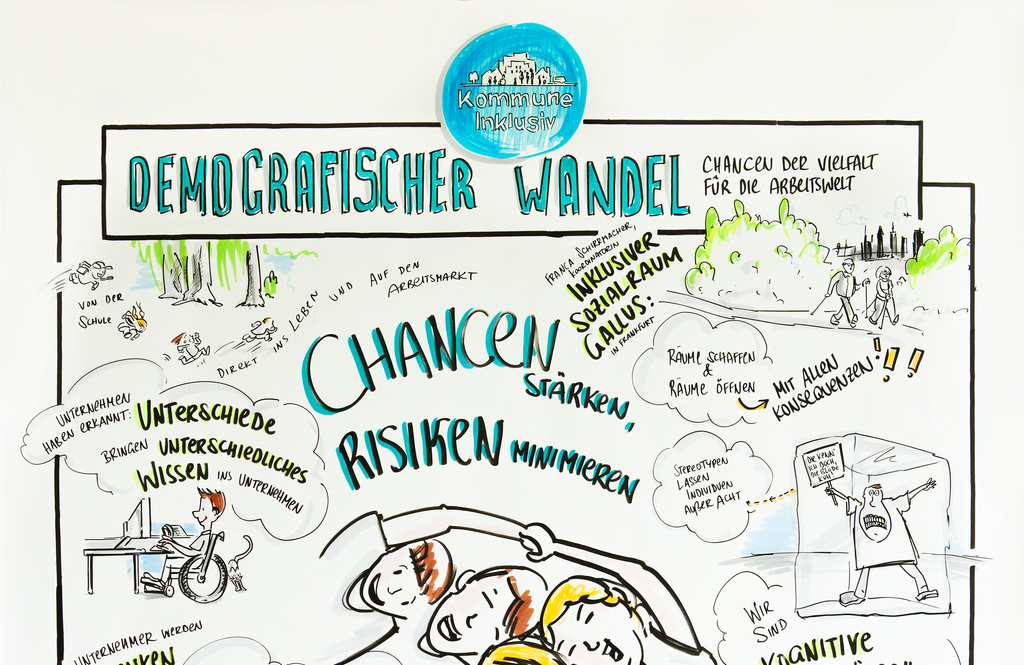 Kommune
Inklusiv
DEMOGRAFISCHER WANDEL
CHANCEN DER VIELFALT
FÜR DIE ARBEITSWELT
VON DER
SCHULE
DIREKT INS LEBEN UND AUF DEN
ARBEITSMARKT
FRANCA SCHIRRMACHER,
KOORDINATORIN
INKLUSIVER
SOZIALRAUM
GALLUS:
IN FRANKFURT
CHANCEN
STÄRKEN,
RISIKEN MINIMIEREN
RÄUME SCHAFFEN
&
RÄUME ÖFFNEN
MIT ALLEN
KONSEQUENZEN!!!
UNTERNEHMEN
HABEN ERKANNT: UNTERSCHIEDE
BRINGEN UNTERSCHIEDLICHES
WISSEN INS UNTERNEHMEN
STEREOTYPEN
LASSEN
INDIVIDUEN
AUßER ACHT
DIE KENN'
ICH DOCH,
DIE
KUH!
WIR
SIND
KOGNITIVE
UNTERNEHMER WERDEN